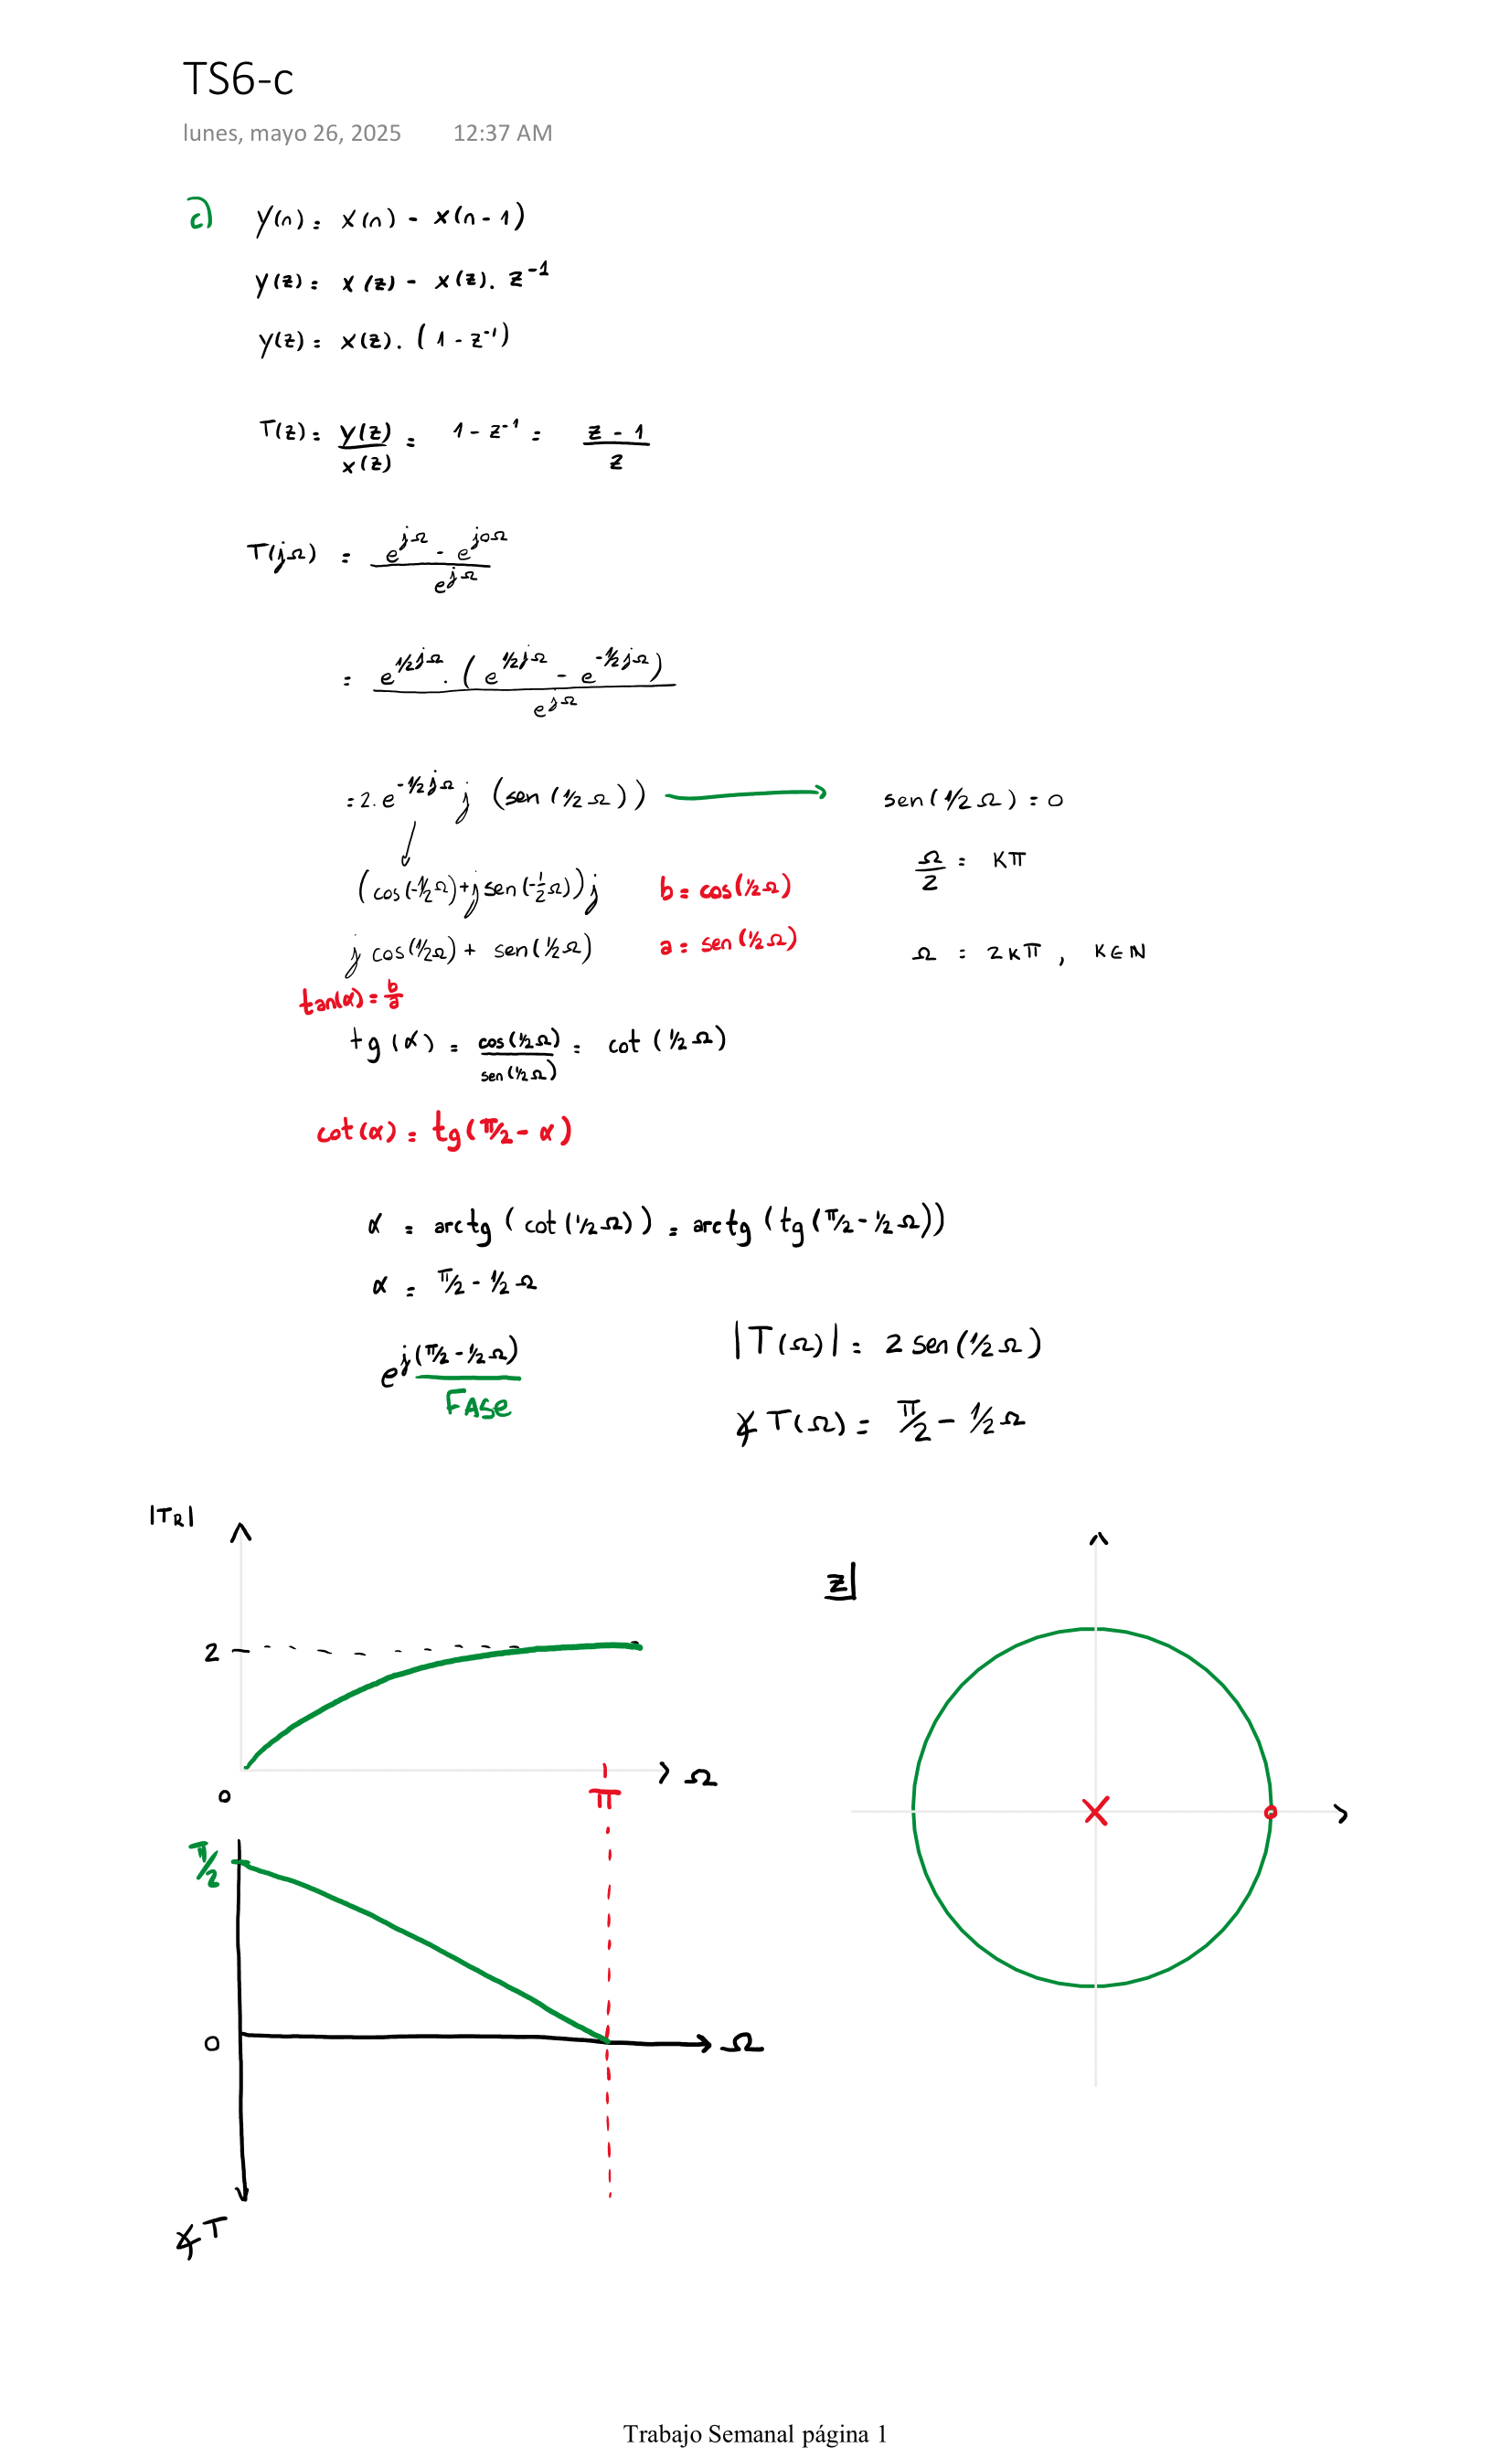 TS6-c
lunes, mayo 26, 2025 12:37 AM
c) y(n) = x(n) - x(n-1)
y(z) = x(z) - x(z). z⁻¹
y(z) = x(z). (1 - z⁻¹)
T(z) = y(z)/x(z) = 1 - z⁻¹ = (z - 1)/z
T(jΩ) = (e^{jΩ} - e^{j0Ω})/e^{jΩ}
= e^{1/2jΩ}. (e^{1/2jΩ} - e^{-1/2jΩ})/e^{jΩ}
= 2. e^{-1/2jΩ} j (sen(1/2Ω)) → sen(1/2Ω) = 0
Ω/2 = Kπ
(cos(-1/2Ω)+j sen(-1/2Ω))j b = cos(1/2Ω)
j cos(1/2Ω) + sen(1/2Ω) a = sen(1/2Ω) Ω = 2Kπ, K∈ℕ
tan(α) = b/a
tg(α) = cos(1/2Ω)/sen(1/2Ω) = cot(1/2Ω)
cot(α) = tg(π/2 - α)
α = arctg(cot(1/2Ω)) = arctg(tg(π/2 - 1/2Ω))
α = π/2 - 1/2Ω
e^{j(π/2 - 1/2Ω)} |T(Ω)| = 2 sen(1/2Ω)
FASe
∡T(Ω) = π/2 - 1/2Ω
|TR|
z
2
Ω
0
π
π/2
0
Ω
∡T
Trabajo Semanal página 1